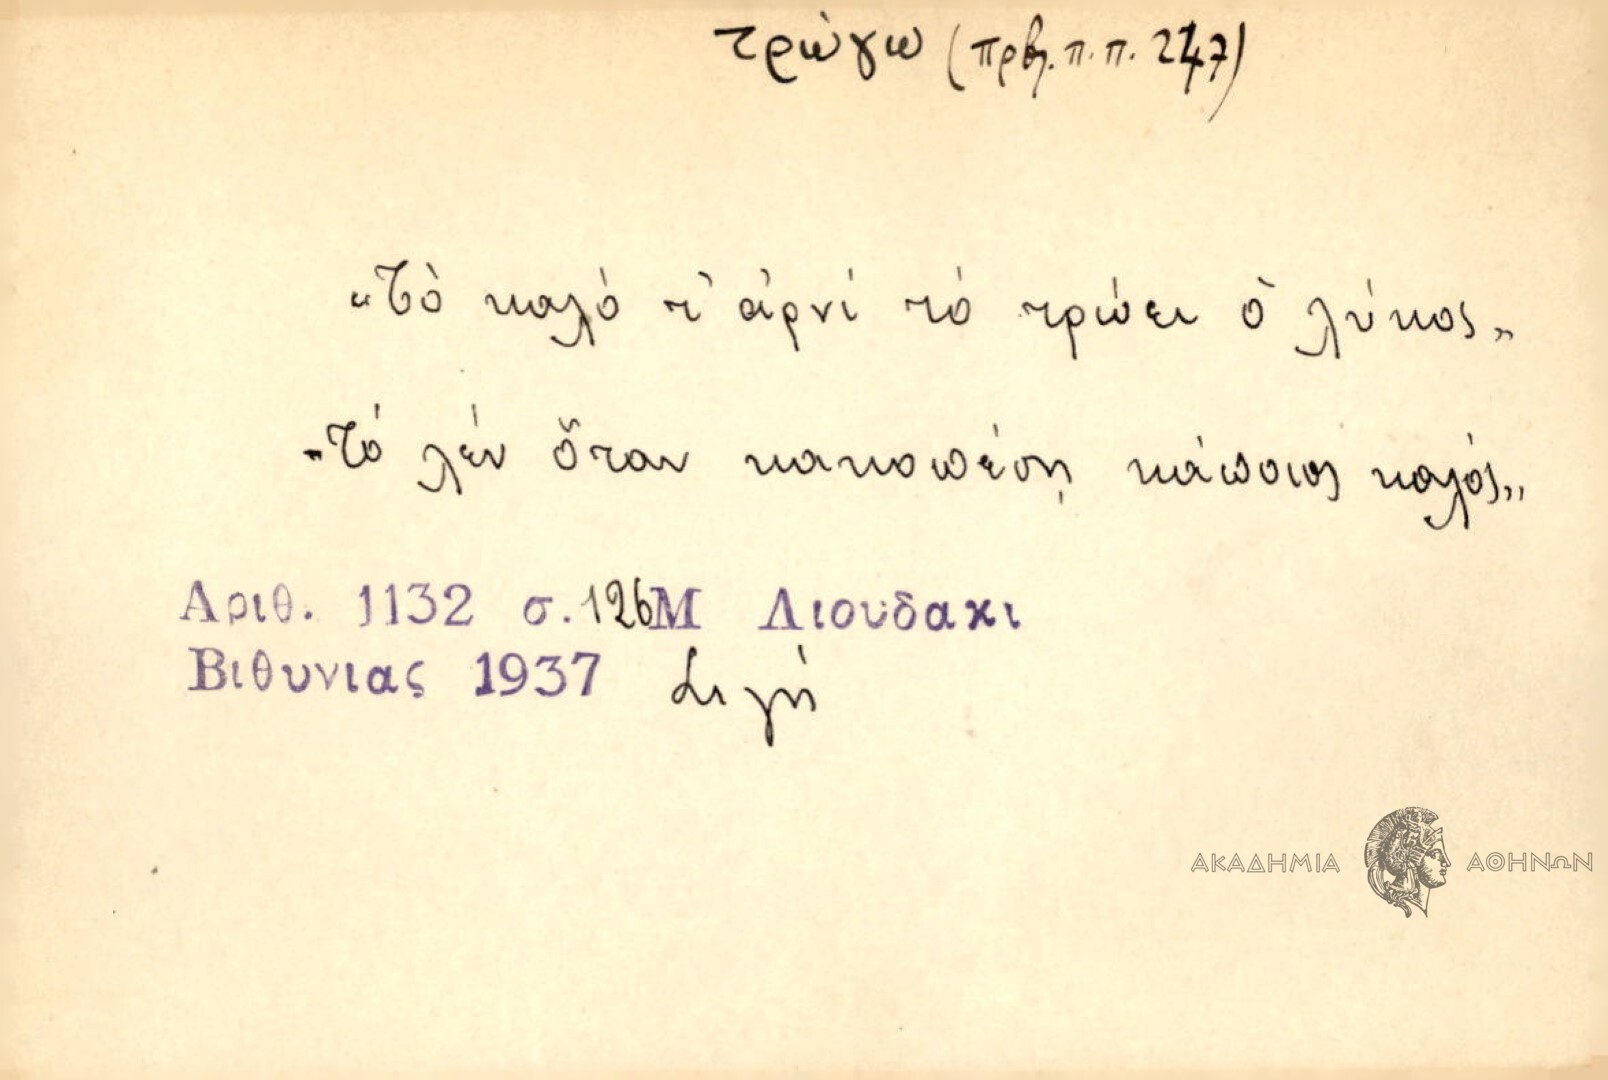 τρώγω (πρβλ. π.π. 247)
«Τὸ καλό τ' ἀρνί τό τρώει ὁ λύκος»
«Τό λέν ὅταν κακοπέσῃ κάποιος καλός»
Αριθ. 1132 σ. 126 Μ Λιουδακι
Βιθυνιας 1937 Σιγή
ΑΚΑΔΗΜΙΑ ΑΘΗΝΩΝ